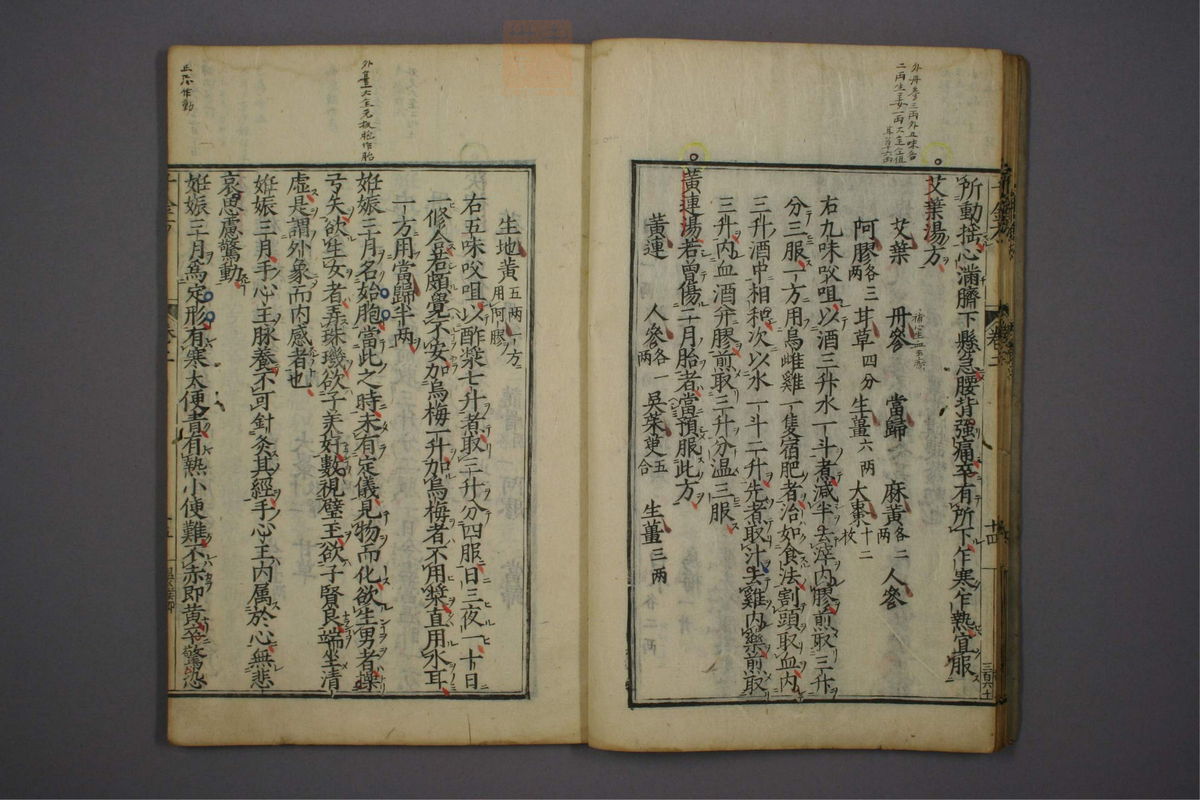 所動揺心滿臍下懸急腰背强痛卒有所下乍寒乍熱宜服
艾葉湯方
艾葉 丹參 當歸 麻黃各二兩 人參
阿膠各三兩 甘草四分 生薑六兩 大棗十二枚
右九味㕮咀以酒三升水一斗煮減半去滓内膠煎取三升
分三服一方用烏雌雞一隻宿肥者治如食法割頭取血内
三升酒中相和次以水一斗二升先者取汁去雞内藥煎取
三升内血酒并膠煎取三升分温三服
黃連湯若曾傷二月胎者當預服此方
黃連 人參各一兩 吳茱萸五合 生薑三兩
生地黃五兩一方用阿膠
右五味㕮咀以酢漿七升煮取三升分四服日三夜一十日
一修合若頗覺不安加烏梅一升加烏梅者不用漿直用水耳
一方用當歸半兩
姙娠三月名始胞當此之時未有定儀見物而化欲生男者操
弓矢欲生女者弄珠璣欲子美好數視璧玉欲子賢良端坐清
虛是謂外象而内感者也
姙娠三月手心主脉養不可針灸其經手心主内属於心無悲
哀思慮驚動
姙娠三月爲定形有寒大便青有熱小便難不赤即黄卒驚恐